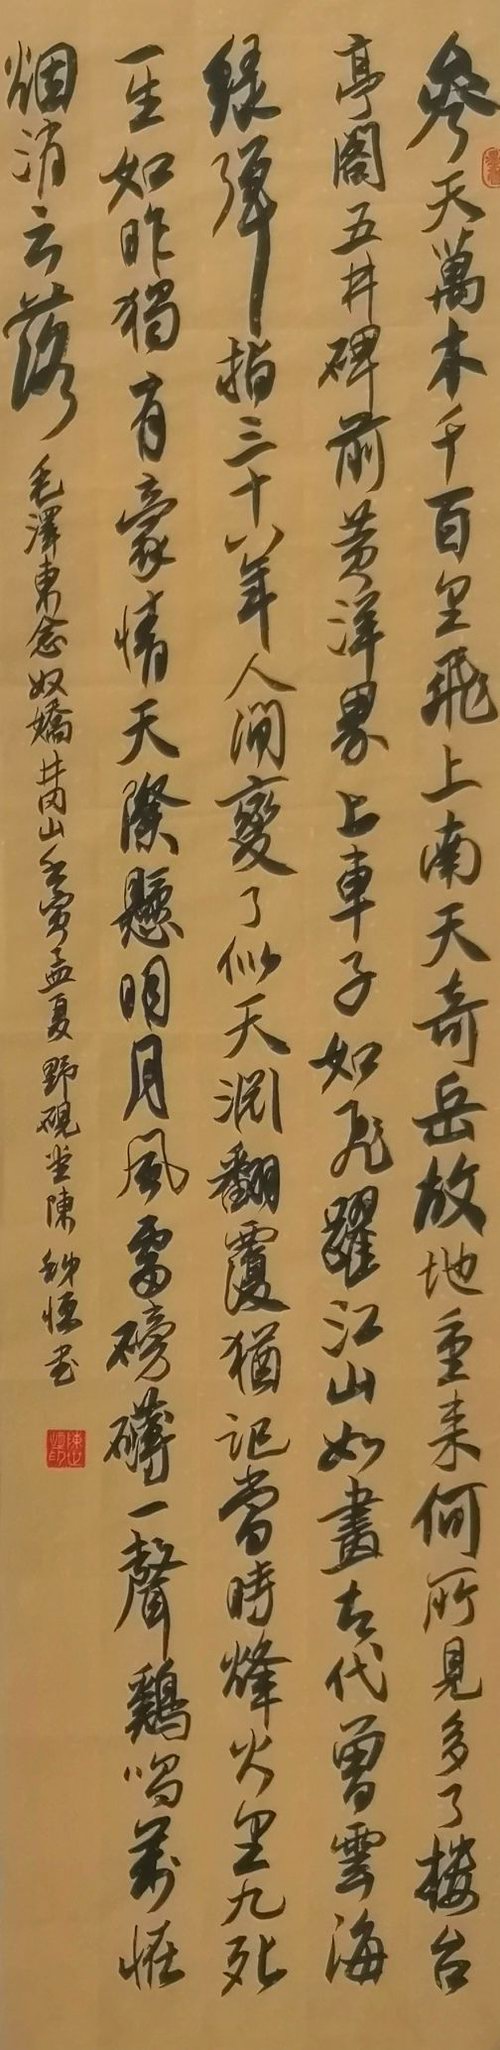 参天萬木千百里飛上南天奇岳故地重来何所見多了楼台
亭閣五井碑前黄洋界上車子如飛躍江山如畫古代曾雲海
緑弾指三十八年人間變了似天渊翻覆猶記當時烽火里九死
一生如昨獨有豪情天際懸明月風雷磅礴一聲鷄唱萬怪
烟消云落
毛澤東念奴嬌井岡山 孟夏野硯堂陳 恒书